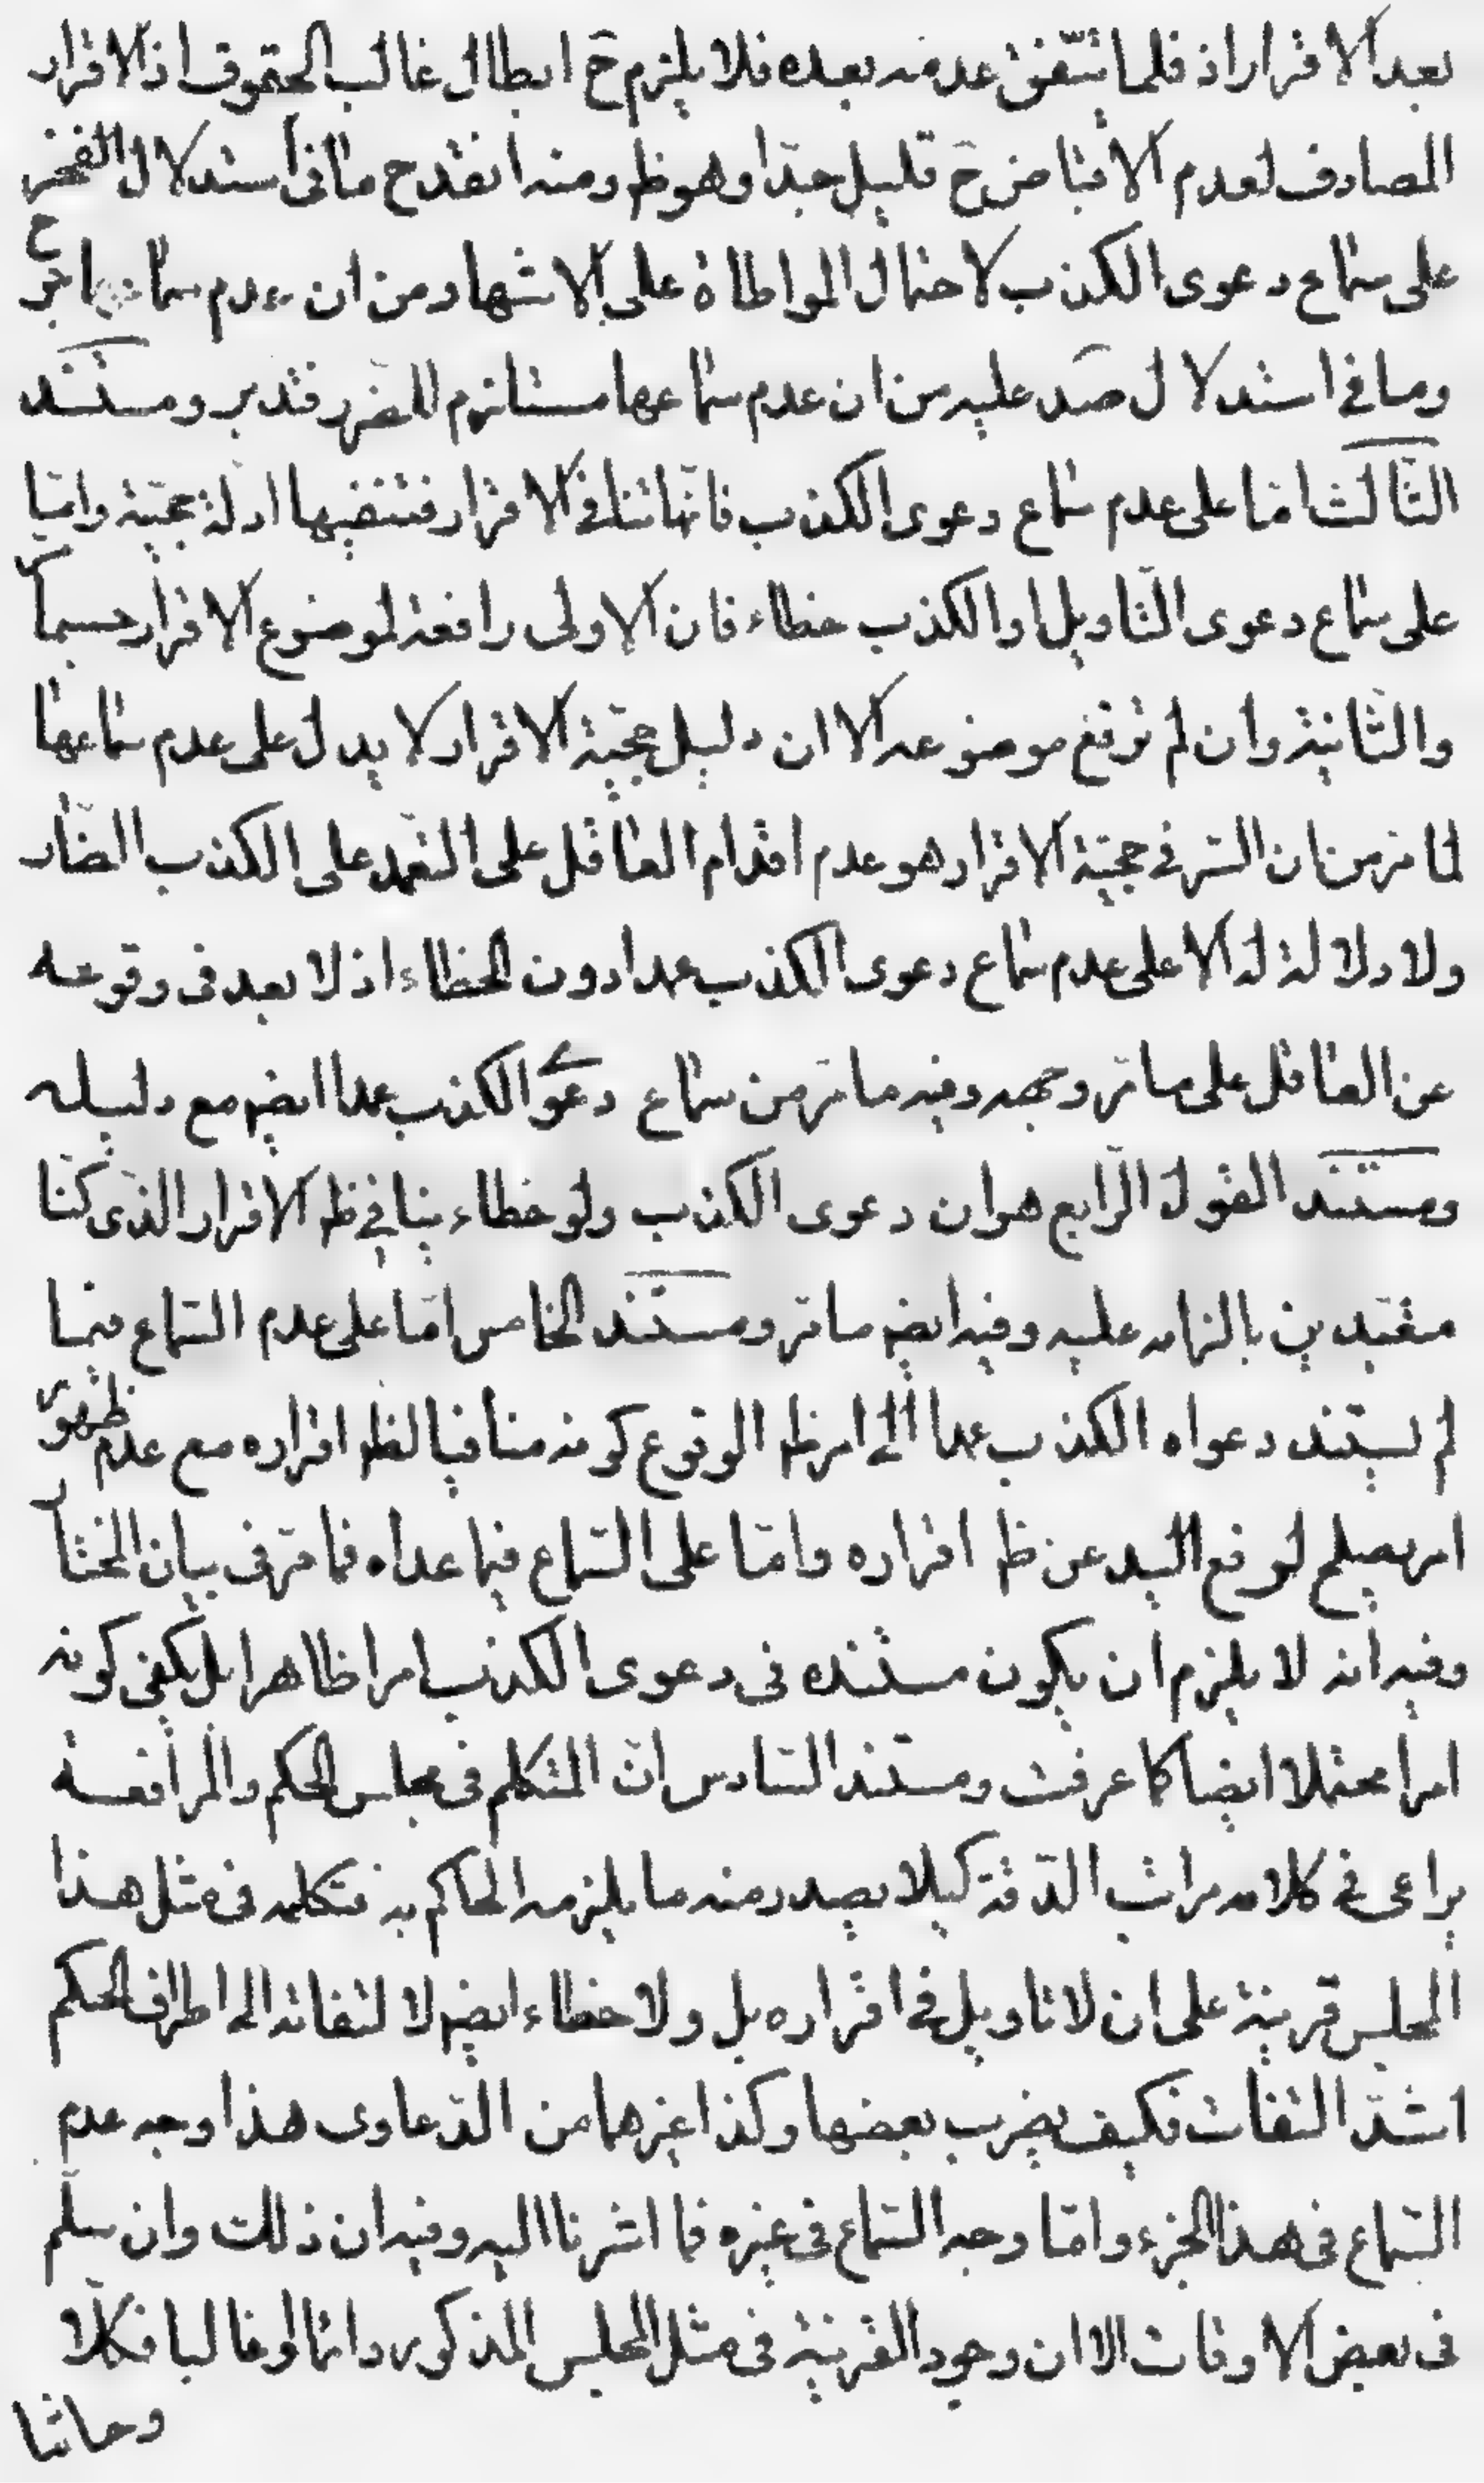 بعد الاقرار اذ قلما يتّفق عدمه بعده فلا يلزم ح ابطال غالب الحقوق اذ الاقرار
المصادف لعدم الاقباض ح قليل جدّا وهو ظ ومنه انقدح ما فى استدلال الفخر
على سماع دعوى الكذب لاحتمال المواطاة على الاشهاد من ان عدم سماعها حرج
وما في استدلال ضد عليه من ان عدم سماعها مستلزم للضرر فتدبر ومستند
الثالث امّا على عدم سماع دعوى الكذب فانّها تنافى الاقرار فتنفيها ادلة حجيّته وامّا
على سماع دعوى التّاويل او الكذب خطاء فان الاولى رافعة لموضوع الاقرار حسبما مر
والثانية وان لم ترفع موضوعه الا ان دليل حجيّة الاقرار لا يدل على عدم سماعها
لما مرّ من ان السّر في حجيّة الاقرار هو عدم اقدام العاقل على التعمد على الكذب الضّار
ولا دلالة له الا على عدم سماع دعوى الكذب عمدا دون الخطاء اذ لا بعد فى وقوعه
عن العاقل على ما مرّ وجهه وفيه ما مرّ من سماع دعوى الكذب عمدا ايضم مع دليله
ومستند القول الرّابع هو ان دعوى الكذب ولو خطاء ينافي ظ الاقرار الذى كنّا
متعبّدين بالزامه عليه وفيه ايضم ما مرّ ومستند الخامس امّا على عدم السّماع فيما
لم يستند دعواه الكذب عمدا الى امر ظ الوقوع كونه منافيا لظ اقراره مع عدم ظهور
امر يصلح لرفع اليد عن ظ اقراره وامّا على السّماع فيما عداه فما مرّ فى بيان المختار
وفيه انه لا يلزم ان يكون مستنده فى دعوى الكذب امرا ظاهرا بل يكفى كونه
امرا محتملا ايضا كما عرفت ومستند السّادس انّ المتكلم فى مجلس الحكم والمرافعة
يراعى في كلامه مراتب الدّقة كيلا يصدر منه ما يلزمه الحاكم به فتكلمه فى مثل هذا
المجلس قرينة على ان لا تاويل في اقراره بل ولا خطاء ايضم لالتفاته الى اطراف الحكم
اشدّ التفات فكيف يضرب بعضها وكذا غيرهما من الدّعاوى هذا وجه عدم
السّماع فى هذا الجزء وامّا وجه السّماع فى غيره فما اشرنا اليه وفيه ان ذلك وان سلّم
فى بعض الاوقات الا ان وجود القرينة فى مثل المجلس المذكور دائما او غالبا فكلّا
وحاشا